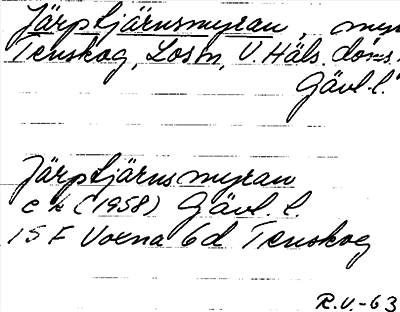 Järptjärnsmyran, myr
Tenskog, Losm, V. Häls. doms.
Gävl. l.
Järptjärnsmyran
e k (1958) Gävl. l.
15 F Voxna 6d Tenskog
R.V. -63